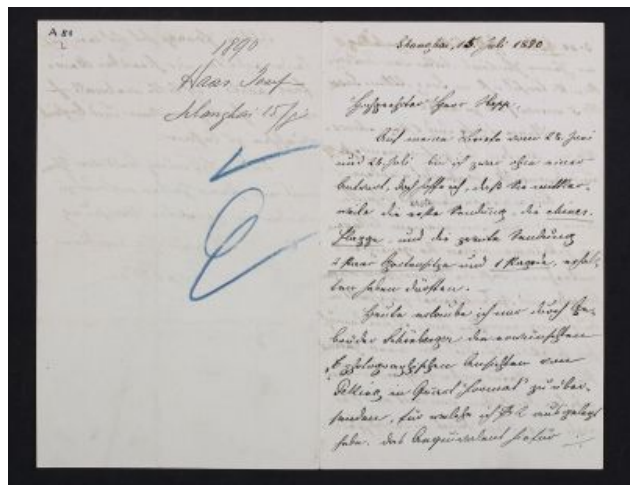 A 80
L
1890
Haas Josef
Shanghai 15/7
Shanghai, 15. Juli 1890
Hochgeehrter Herr
Auf meine Briefe vom 28. Juni
und 24. Juli bin ich zwar ohne einer
Antwort, doch hoffe ich, daß Sie mittler-
weile die erste Sendung, die chines.
Flagge, und die zweite Sendung
2 Paar und 1 erhal-
ten haben dürften.
Heute erlaube ich mir durch Ge-
brüder die erwünschten
6 photographischen Ansichten von
Peking in "Quart Format" zu über-
senden, für welche ich $ 2 ausgelegt
habe. Das Aequivalent hiefür